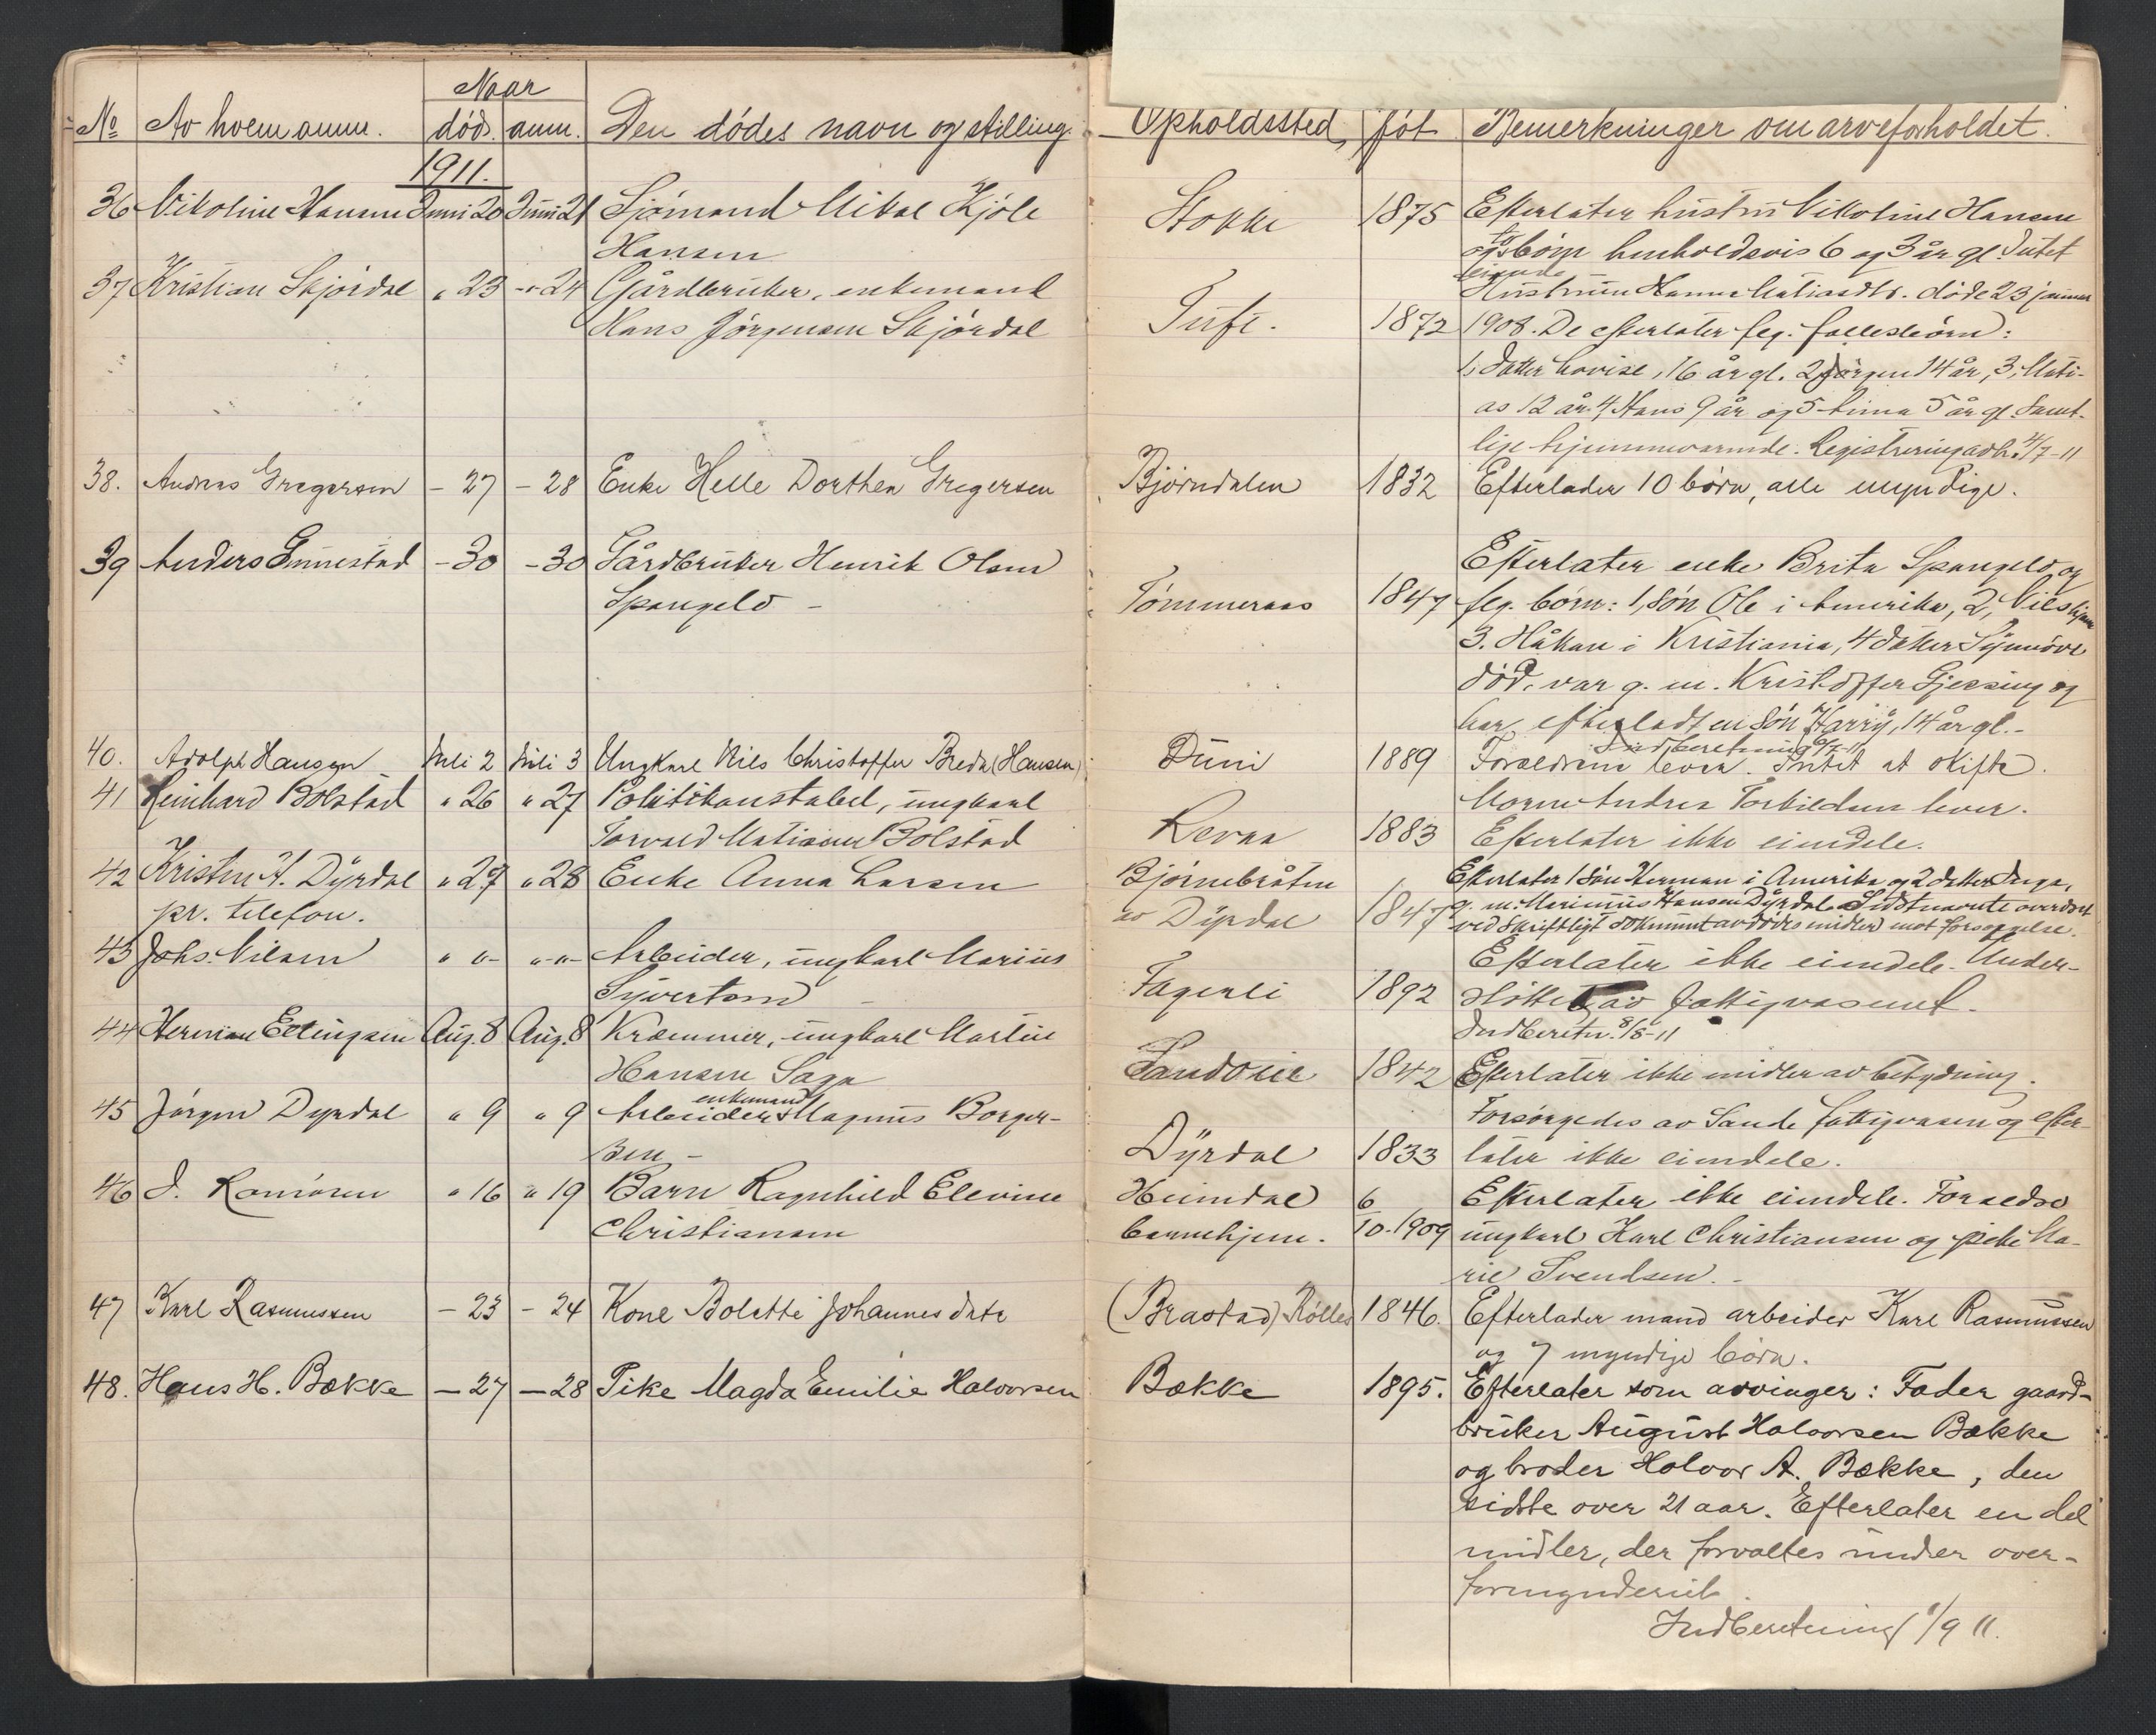 Naar
No Av hvem anm. død. anm. Den dødes navn og stilling. Opholdssted, føt Bemerkninger om arveforholdet.
1911.
36 Nikoline Hansen Juni 20 Juni 21 Sjømand Mikal Kjøle Stokke 1875 Efterlater hustru Nikoline Hansen
Hansen og to børn henholdsvis 6 og 3 år gl. Intet
eiende
37 Kristian Skjørdal " 23 -"- 24 Gårdbruker, enkemand Tuft. 1872 Hustruen Hanna Matiasdtr. døde 23 januar
Hans Jørgensen Skjørdal 1908. De efterlater feg. fællesbørn:
1, datter Lovise, 16 år gl. 2, Jørgen 14 år, 3, Mati-
as 12 år 4, Hans 9 år og 5 5 år gl. Samt-
lige hjemmeværende. Registrering avh. 4/7-11
38. Andreas Gregersen - 27 - 28 Enke Helle Dorthea Gregersen Bjørndalen 1832 Efterlader 10 børn, alle myndige.
39 Anders Gunnestad - 30 - 30 Gårdbruker Henrik Olsen Tømmeraas 1847 Efterlater enke Brita Spangelo og
Spangelo - feg. børn: 1, søn Ole i Amerika, 2, Nils hjem
3. Håkan i Kristiania, 4 datter Synnøve
død, var g. m. Kristoffer Gjessing og
har efterladt en søn Harry, 14 år gl. -
Indberetning 6/7-11
40. Adolph Hansen Juli 2 Juli 3 Ungkarl Nils Christoffer Breda (Hansen) Duni 1889 Forældrene lever. Intet at skifte.
41 Reinhard Bolstad " 26 " 27 Politikonstabel, ungkarl Revaa 1883 Moren Andrea Torkildsen lever.
Torvald Matisen Bolstad Efterlater ikke eiendele.
42 Kristen A. Dyrdal " 27 " 28 Enke Anna Larsen Bjørnebråten 1847 Efterlater 1 søn Herman i Amerika og 2 datter Inga,
pr. telefon. av Dyrdal g. m. Marinius Hansen Dyrdal. Sidstnævnte overdrat
ved skriftligt dokument avdødes midler mot forsørgelse.
43 Johs. Nilsen " "- "-"- Arbeider, ungkarl Marius Fagerli 1892 Efterlater ikke eiendele. Under-
Syvertsen - støttet av fattigvæsenet.
Indberetn. 8/8-11
44 Herman Ellingsen Aug. 8 Aug. 8 Kræmmer, ungkarl Martin Sandvik 1842 Efterlater ikke midler av betydning.
Hansen Saga
45 Jørgen Dyrdal " 9 " 9 Arbeider enkemand Magnus Borger- Dyrdal 1833 Forsørgedes av Sande fattigvæsen og efter-
sen - later ikke eiendele.
46 J. " 16 " 19 Barn Ragnhild Elevine Heimdal 6 Efterlater ikke eiendele. Forældre
Christiansen barnehjem. 10-1909 ungkarl Karl Christiansen og pike Ma-
rie Svendsen. -
47 Karl Rasmussen - 23 - 24 Kone Bolette Johannesdatr (Brastad) Kølles 1846. Efterlader mand arbeider Karl Rasmussen
og 7 myndige børn.
48. Hans H. Bække - 27 - 28 Pike Magda Emilie Halvorsen Bække 1895. Efterlater som arvinger: Fader gaard-
bruker August Halvorsen Bække
og broder Halvor A. Bække, den
sidste over 21 aar. Efterlater en del
midler, der forvaltes under over-
formynderiet.
Indberetning 1/9 11.